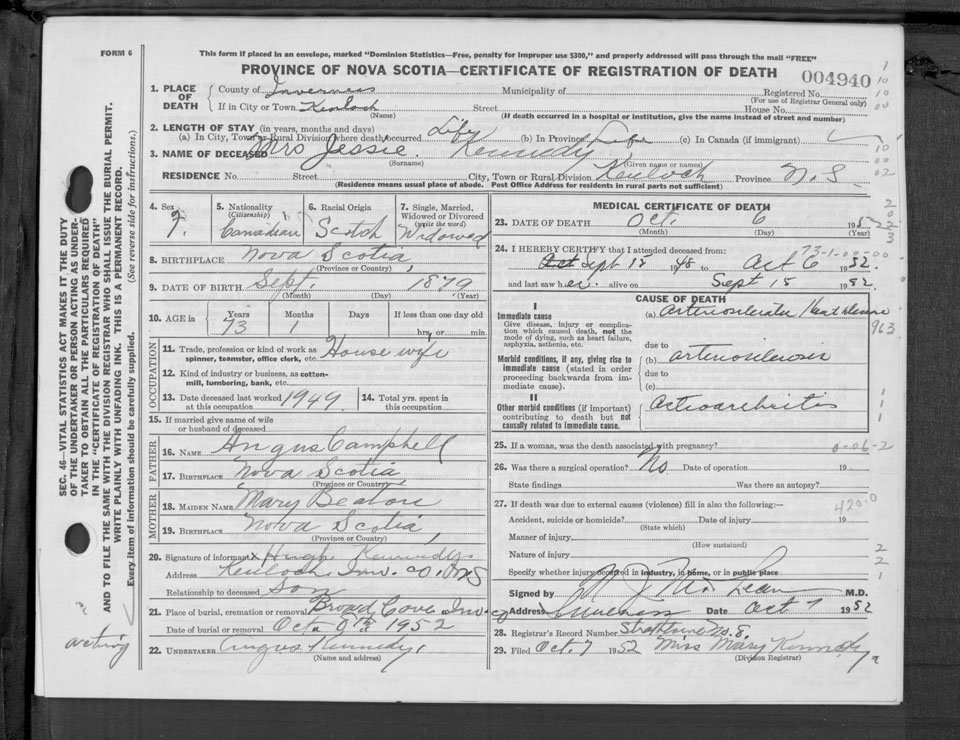 FORM 6
This form if placed in an envelope, marked "Dominion Statistics—Free, penalty for improper use $300," and properly addressed will pass through the mail "FREE"
PROVINCE OF NOVA SCOTIA—CERTIFICATE OF REGISTRATION OF DEATH 004940
1. PLACE OF DEATH
County of Inverness Municipality of Registered No.
(For use of Registrar General only)
If in City or Town Kenloch Street House No.
(Name) (If death occurred in a hospital or institution, give the name instead of street and number)
2. LENGTH OF STAY (in years, months and days)
(a) In City, Town or Rural Division where death occurred Life (b) In Province Life (c) In Canada (if immigrant)
3. NAME OF DECEASED Mrs Jessie Kennedy
(Surname) (Given name or names)
RESIDENCE No. Street City, Town or Rural Division Kenloch Province N.S.
(Residence means usual place of abode. Post Office Address for residents in rural parts not sufficient)
4. Sex F.
5. Nationality (Citizenship) Canadian
6. Racial Origin Scotch
7. Single, Married, Widowed or Divorced (write the word) Widowed
8. BIRTHPLACE Nova Scotia
(Province or Country)
9. DATE OF BIRTH Sept. 1879
(Month) (Day) (Year)
10. AGE in Years 73 Months 1 Days If less than one day old hrs or min.
OCCUPATION
11. Trade, profession or kind of work as spinner, teamster, office clerk, etc. House wife
12. Kind of industry or business, as cotton-mill, lumbering, bank, etc.
13. Date deceased last worked at this occupation 1949
14. Total yrs. spent in this occupation
15. If married give name of wife or husband of deceased
FATHER
16. NAME Angus Campbell
17. BIRTHPLACE Nova Scotia
(Province or Country)
MOTHER
18. MAIDEN NAME Mary Beaton
19. BIRTHPLACE Nova Scotia
(Province or Country)
20. Signature of informant x Hugh Kennedy
Address Kenloch Inv. Co. N.S
Relationship to deceased Son
21. Place of burial, cremation or removal Broad Cove Inv. Co
Date of burial or removal Oct. 9th 1952
22. UNDERTAKER Angus Kennedy
(Name and address)
MEDICAL CERTIFICATE OF DEATH
23. DATE OF DEATH Oct. 6 1952
(Month) (Day) (Year)
24. I HEREBY CERTIFY that I attended deceased from:
Sept 15 1948 to Oct 6 1952.
and last saw her alive on Sept 15 1952.
CAUSE OF DEATH
I
Immediate cause
Give disease, injury or complication which caused death, not the mode of dying, such as heart failure, asphyxia, asthenia, etc.
(a)
due to
Morbid conditions, if any, giving rise to immediate cause (stated in order proceeding backwards from immediate cause).
(b) arteriosclerosis
due to
(c)
II
Other morbid conditions (if important) contributing to death but not causally related to immediate cause.
25. If a woman, was the death associated with pregnancy?
26. Was there a surgical operation? No Date of operation 19
State findings Was there an autopsy?
27. If death was due to external causes (violence) fill in also the following:—
Accident, suicide or homicide? Date of injury 19
(State which)
Manner of injury
(How sustained)
Nature of injury
Specify whether injury occurred in industry, in home, or in public place
Signed by N J McLean M.D.
Address Inverness Date Oct 7 1952
28. Registrar's Record Number Strathlorne No. 8.
29. Filed Oct. 7 1952 Miss Mary Kennedy
(Division Registrar)
SEC. 46—VITAL STATISTICS ACT MAKES IT THE DUTY
OF THE UNDERTAKER OR PERSON ACTING AS UNDER-
TAKER TO OBTAIN ALL THE PARTICULARS REQUIRED
IN THE "CERTIFICATE OF REGISTRATION OF DEATH"
AND TO FILE THE SAME WITH THE DIVISION REGISTRAR WHO SHALL ISSUE THE BURIAL PERMIT.
WRITE PLAINLY WITH UNFADING INK. THIS IS A PERMANENT RECORD.
Every item of information should be carefully supplied. (See reverse side for instructions.)
acting